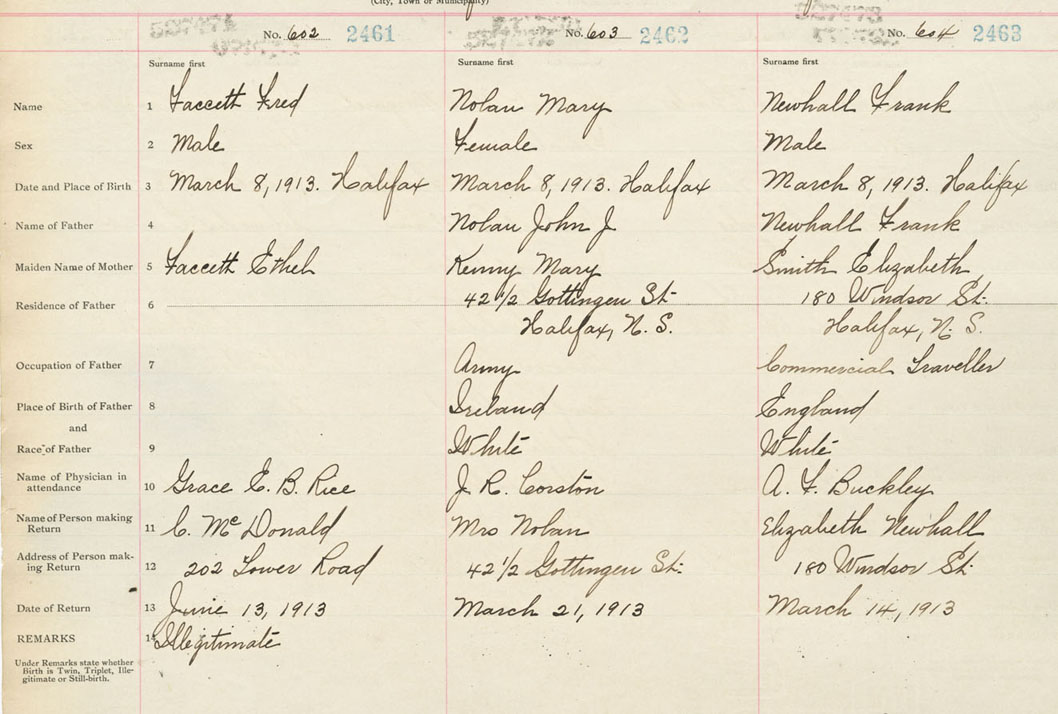 (City, Town or Municipality)
No. 602 2461 No. 603 2462 No. 604 2463
Surname first Surname first Surname first
Name 1 Faccett Fred Nolan Mary Newhall Frank
Sex 2 Male Female Male
Date and Place of Birth 3 March 8, 1913. Halifax March 8, 1913. Halifax March 8, 1913. Halifax
Name of Father 4 Nolan John J Newhall Frank
Maiden Name of Mother 5 Faccett Ethel Kenny Mary Smith Elizabeth
Residence of Father 6 42 1/2 Gottingen St. 180 Windsor St.
Halifax, N. S. Halifax, N. S.
Occupation of Father 7 Army Commercial Traveller
Place of Birth of Father 8 Ireland England
and
Race of Father 9 White White
Name of Physician in
attendance 10 Grace E. B. Rice J. R. Corston A. F. Buckley
Name of Person making
Return 11 C. McDonald Mrs Nolan Elizabeth Newhall
Address of Person mak-
ing Return 12 202 Tower Road 42 1/2 Gottingen St. 180 Windsor St.
Date of Return 13 June 13, 1913 March 21, 1913 March 14, 1913
REMARKS 14 Illegitimate
Under Remarks state whether
Birth is Twin, Triplet, Ille-
gitimate or Still-birth.